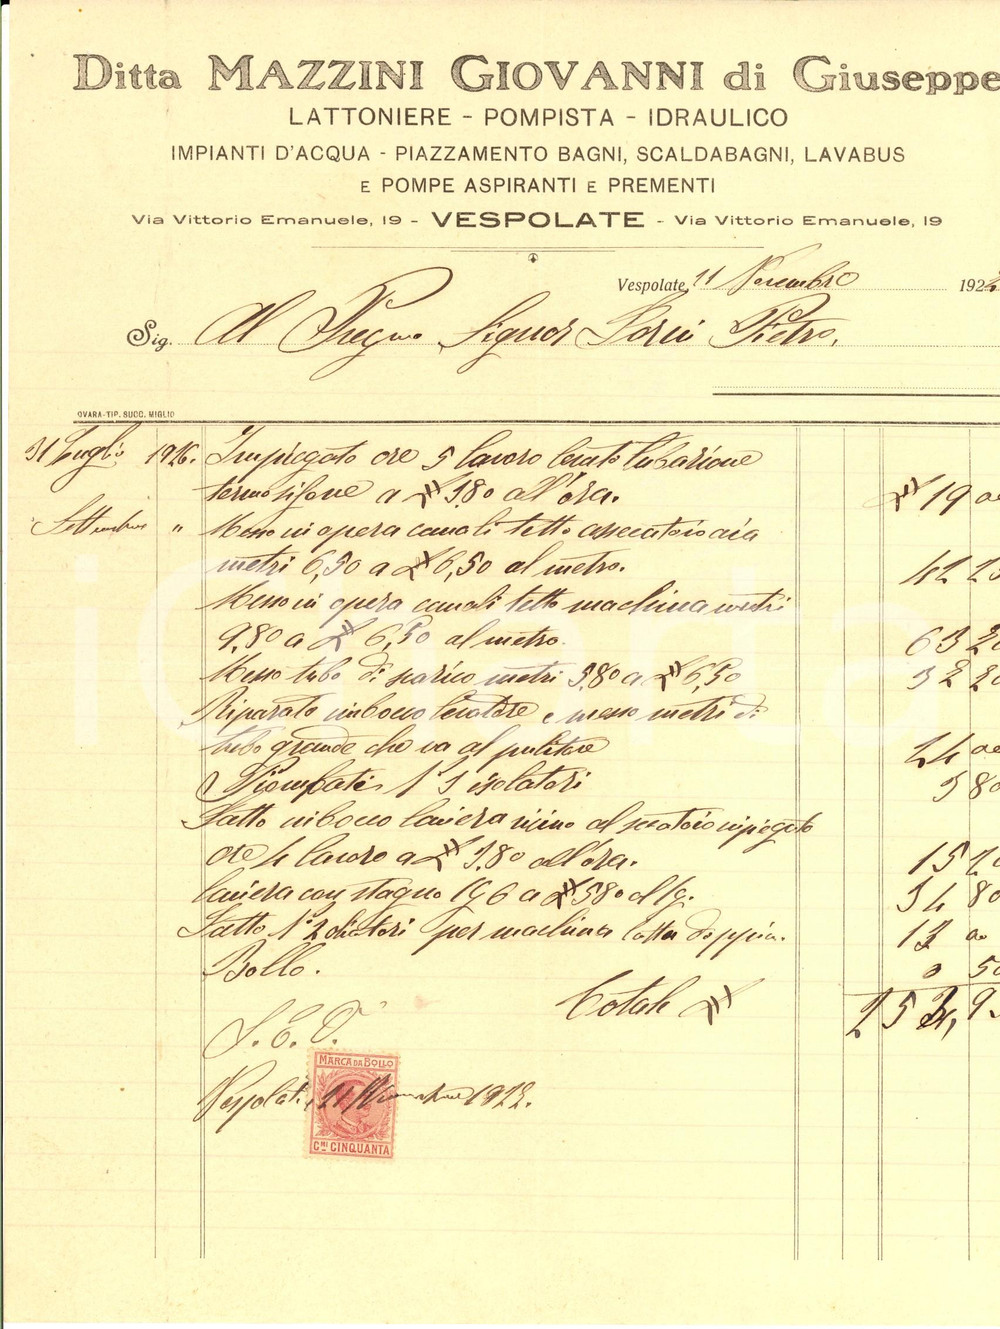 Ditta MAZZINI GIOVANNI di Giuseppe
LATTONIERE - POMPISTA - IDRAULICO
IMPIANTI D'ACQUA - PIAZZAMENTO BAGNI, SCALDABAGNI, LAVABUS
E POMPE ASPIRANTI E PREMENTI
Via Vittorio Emanuele, 19 - VESPOLATE - Via Vittorio Emanuele, 19
Vespolate, 11 Novembro 192
Sig. Al Pregmo Signor Pietro,
OVARA-TIP. SUCC. MIGLIO
31 Luglio 1926. Impiegato ore 5 lavoro tubazione
termosifone a 3.80 all'ora. 19
Settembre " Messo in opera canali tetto
metri 6,50 a 6,50 al metro. 42 25
Messo in opera canali tetto machina metri
9.80 a 6,50 al metro. 63
Messo tubo di scarico metri 3.80 a 6,50
Riparato imbocco e messo metri di
tubo grande che va al pulitore 24
Piombati N 3 isolatori 3 80
Fatto imbocco lamiera vicino al impiegato
ore 4 lavoro a 3.80 all'ora. 15
lamiera con stagno Kg 6 a 5.80 al Kg. 34 80
Fatto N° 2 per machina latta doppia. 13
Bollo. 0 50
Totale
S. E. O.
Vespolate, 11
MARCA DA BOLLO
CMI CINQUANTA
iCharta